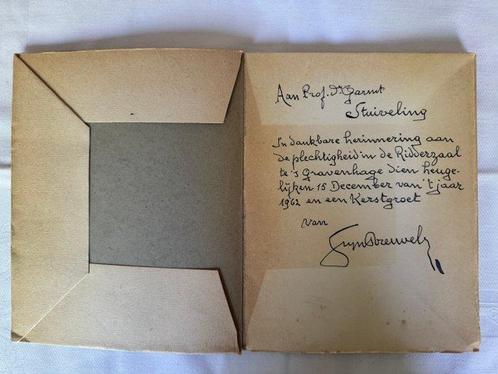 Aan Prof. Dr Garmt
Stuiveling
In dankbare herinnering aan
de plechtigheid in de Ridderzaal
te 's Gravenhage dien heuge-
lijken 15 December van 't jaar
1962 en een Kerstgroet
van
Stijn Streuvels